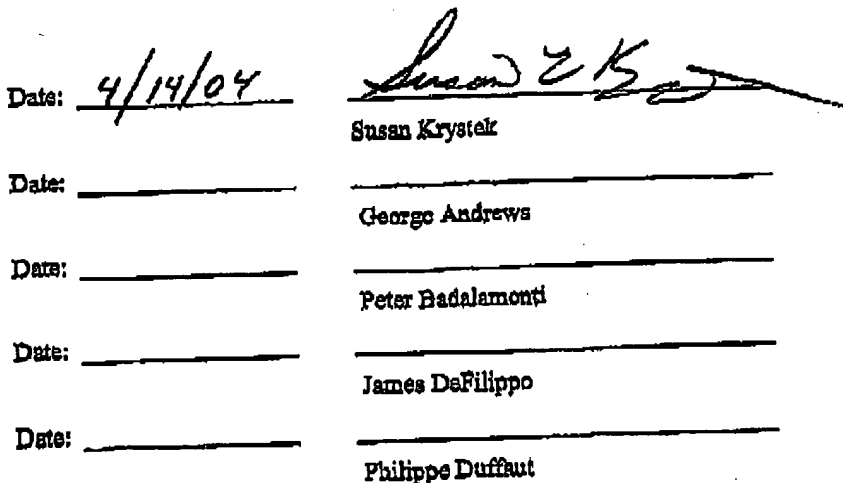 Date: 4/14/04 Susan E K
Susan Krystek
Date:
George Andrews
Date:
Peter Badalamonti
Date:
James DeFilippo
Date:
Philippe Duffaut